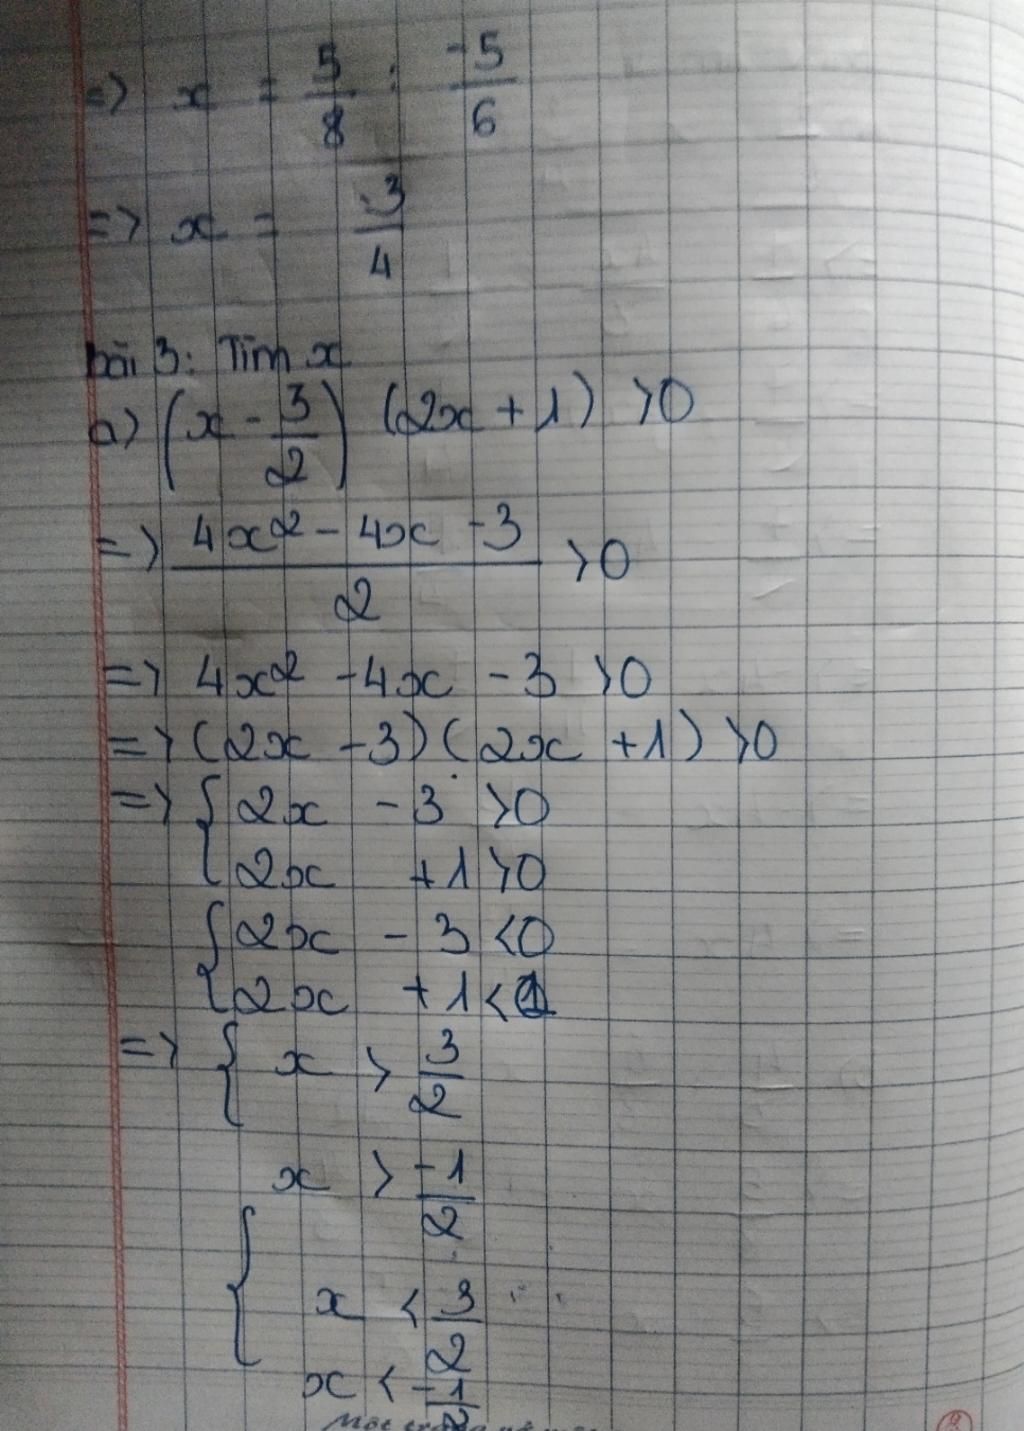 => x = 5/8 : -5/6
=> x = -3/4
bài 3: Tìm x
a) (x - 3/2) (2x + 1) >0
=> (4x² - 4x - 3)/2 >0
=> 4x² - 4x - 3 >0
=> (2x - 3) (2x + 1) >0
=> { 2x - 3 >0
2x + 1 >0
{ 2x - 3 <0
2x + 1 <
=> { x > 3/2
x > -1/2
{ x < 3/2
x < -1/2